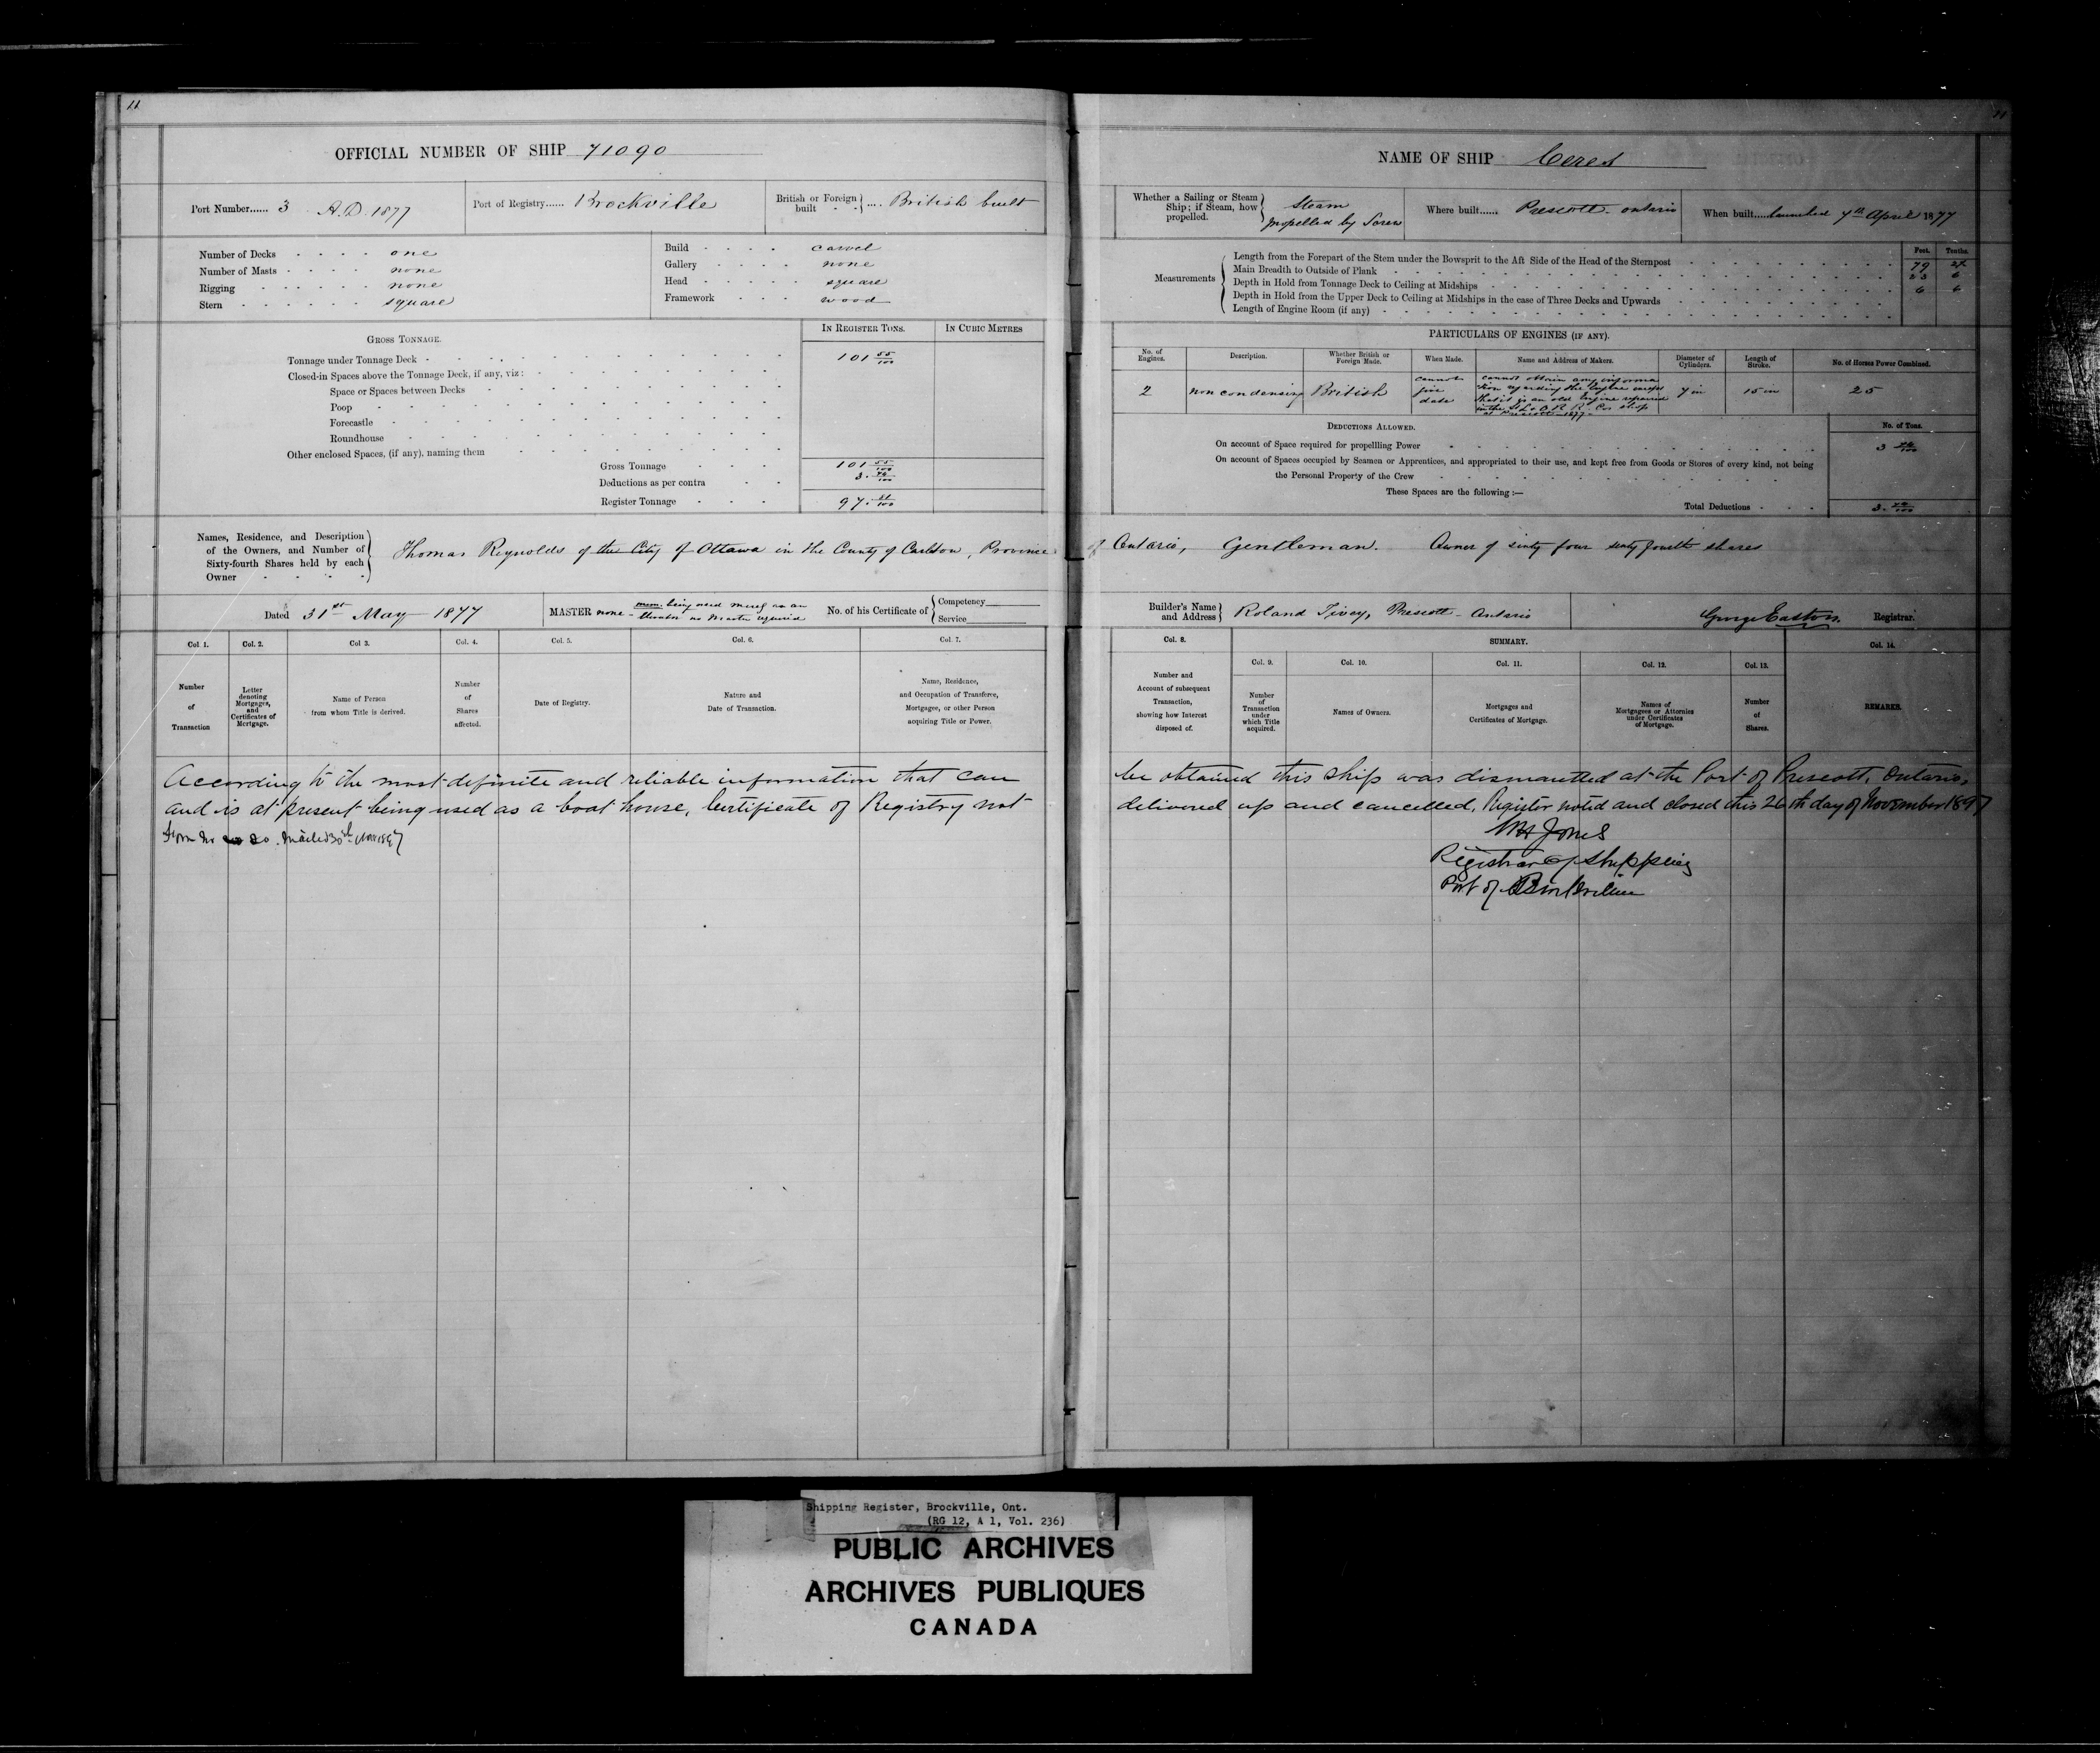 11
OFFICIAL NUMBER OF SHIP 71090
Port Number...... 3 A.D. 1877
Port of Registry...... Brockville
British or Foreign built - - } .... British built
Number of Decks - - - - one
Number of Masts - - - - none
Rigging - - - - none
Stern - - - - square
Build - - - - carvel
Gallery - - - - none
Head - - - - square
Framework - - - - wood
GROSS TONNAGE.
IN REGISTER TONS.
IN CUBIC METRES
Tonnage under Tonnage Deck - 101 55/100
Closed-in Spaces above the Tonnage Deck, if any, viz:
Space or Spaces between Decks
Poop
Forecastle
Roundhouse
Other enclosed Spaces, (if any), naming them
Gross Tonnage 101 55/100
Deductions as per contra 3.74/100
Register Tonnage 97.81/100
Names, Residence, and Description
of the Owners, and Number of
Sixty-fourth Shares held by each
Owner
Thomas Reynolds of the City of Ottawa in the County of Carleton, Province
Dated 31st May 1877
MASTER none - being used merely as an
no Master required
No. of his Certificate of { Competency
Service
Col 1.
Col. 2.
Col 3.
Col. 4.
Col. 5.
Col. 6.
Col. 7.
Number
of
Transaction
Letter
denoting
Mortgages,
and
Certificates of
Mortgage.
Name of Person
from whom Title is derived.
Number
of
Shares
affected.
Date of Registry.
Nature and
Date of Transaction.
Name, Residence,
and Occupation of Transferee,
Mortgagee, or other Person
acquiring Title or Power.
According to the most definite and reliable information that can
and is at present being used as a boat house, Certificate of Registry not
Form No 20. Mailed 30th Nov 1897
11
NAME OF SHIP Ceres
Whether a Sailing or Steam
Ship; if Steam, how
propelled.
Steam
propelled by Screw
Where built...... Prescott - Ontario
When built.... launched 7th April 1877
Feet. Tenths.
Measurements
Length from the Forepart of the Stem under the Bowsprit to the Aft Side of the Head of the Sternpost 79
Main Breadth to Outside of Plank 23 6
Depth in Hold from Tonnage Deck to Ceiling at Midships 6 6
Depth in Hold from the Upper Deck to Ceiling at Midships in the case of Three Decks and Upwards
Length of Engine Room (if any)
PARTICULARS OF ENGINES (IF ANY).
No. of
Engines.
Description.
Whether British or
Foreign Made.
When Made.
Name and Address of Makers.
Diameter of
Cylinders.
Length of
Stroke.
No. of Horses Power Combined.
2
non condensing
British
cannot
give
date
cannot obtain any informa
tion regarding the Engine except
that it is an old Engine repaired
in the St L & O R R Cos shop
at Prescott 1877
7 in
15 in
25
DEDUCTIONS ALLOWED.
No. of Tons.
On account of Space required for propelling Power 3 74/100
On account of Spaces occupied by Seamen or Apprentices, and appropriated to their use, and kept free from Goods or Stores of every kind, not being
the Personal Property of the Crew
These Spaces are the following :—
Total Deductions 3.74/100
of Ontario, Gentleman. Owner of sixty four sixty fourth shares
Builder's Name
and Address
Roland Tivey, Prescott - Ontario
George Easton. Registrar.
Col. 8.
SUMMARY.
Col. 14.
Col. 9.
Col. 10.
Col. 11.
Col. 12.
Col. 13.
Number and
Account of subsequent
Transaction,
showing how Interest
disposed of.
Number
of
Transaction
under
which Title
acquired.
Names of Owners.
Mortgages and
Certificates of Mortgage.
Names of
Mortgagees or Attornies
under Certificates
of Mortgage.
Number
of
Shares.
REMARKS.
be obtained this ship was dismantled at the Port of Prescott, Ontario,
delivered up and cancelled, Register noted and closed this 26th day of November 1897
WH Jones
Registrar of Shipping
Port of Brockville
Shipping Register, Brockville, Ont.
(RG 12, A 1, Vol. 236)
PUBLIC ARCHIVES
ARCHIVES PUBLIQUES
CANADA